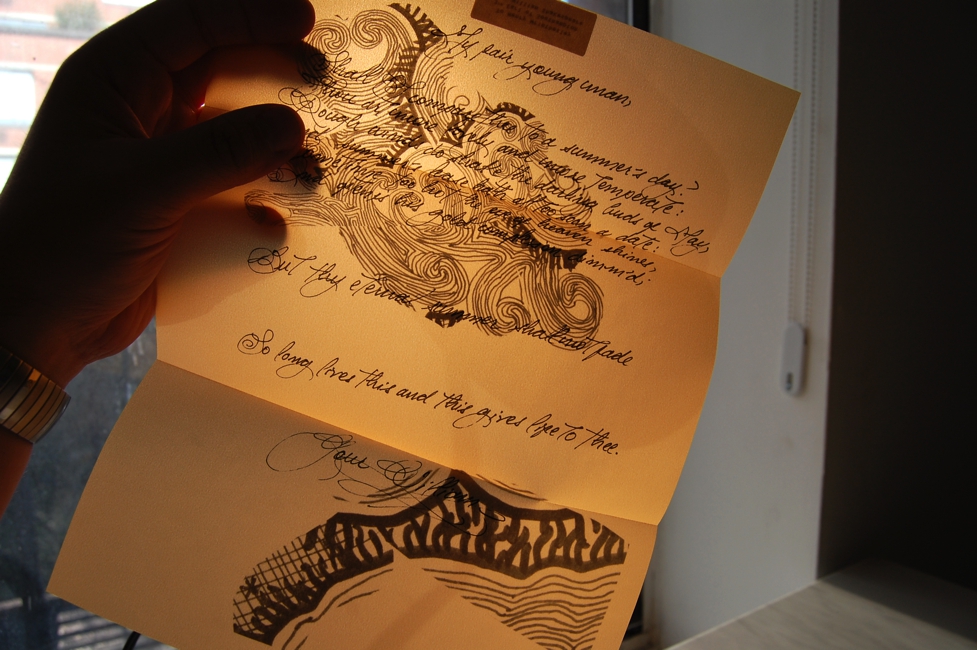 My fair young man,
Shall I compare thee to a summer's day?
Thou art more lovely and more temperate:
Rough winds do shake the darling buds of May,
And summer's lease hath all too short a date:
Sometime too hot the eye of heaven shines,
And often is his gold complexion dimm'd;
But thy eternal summer shall not fade
So long lives this and this gives life to thee.
Your